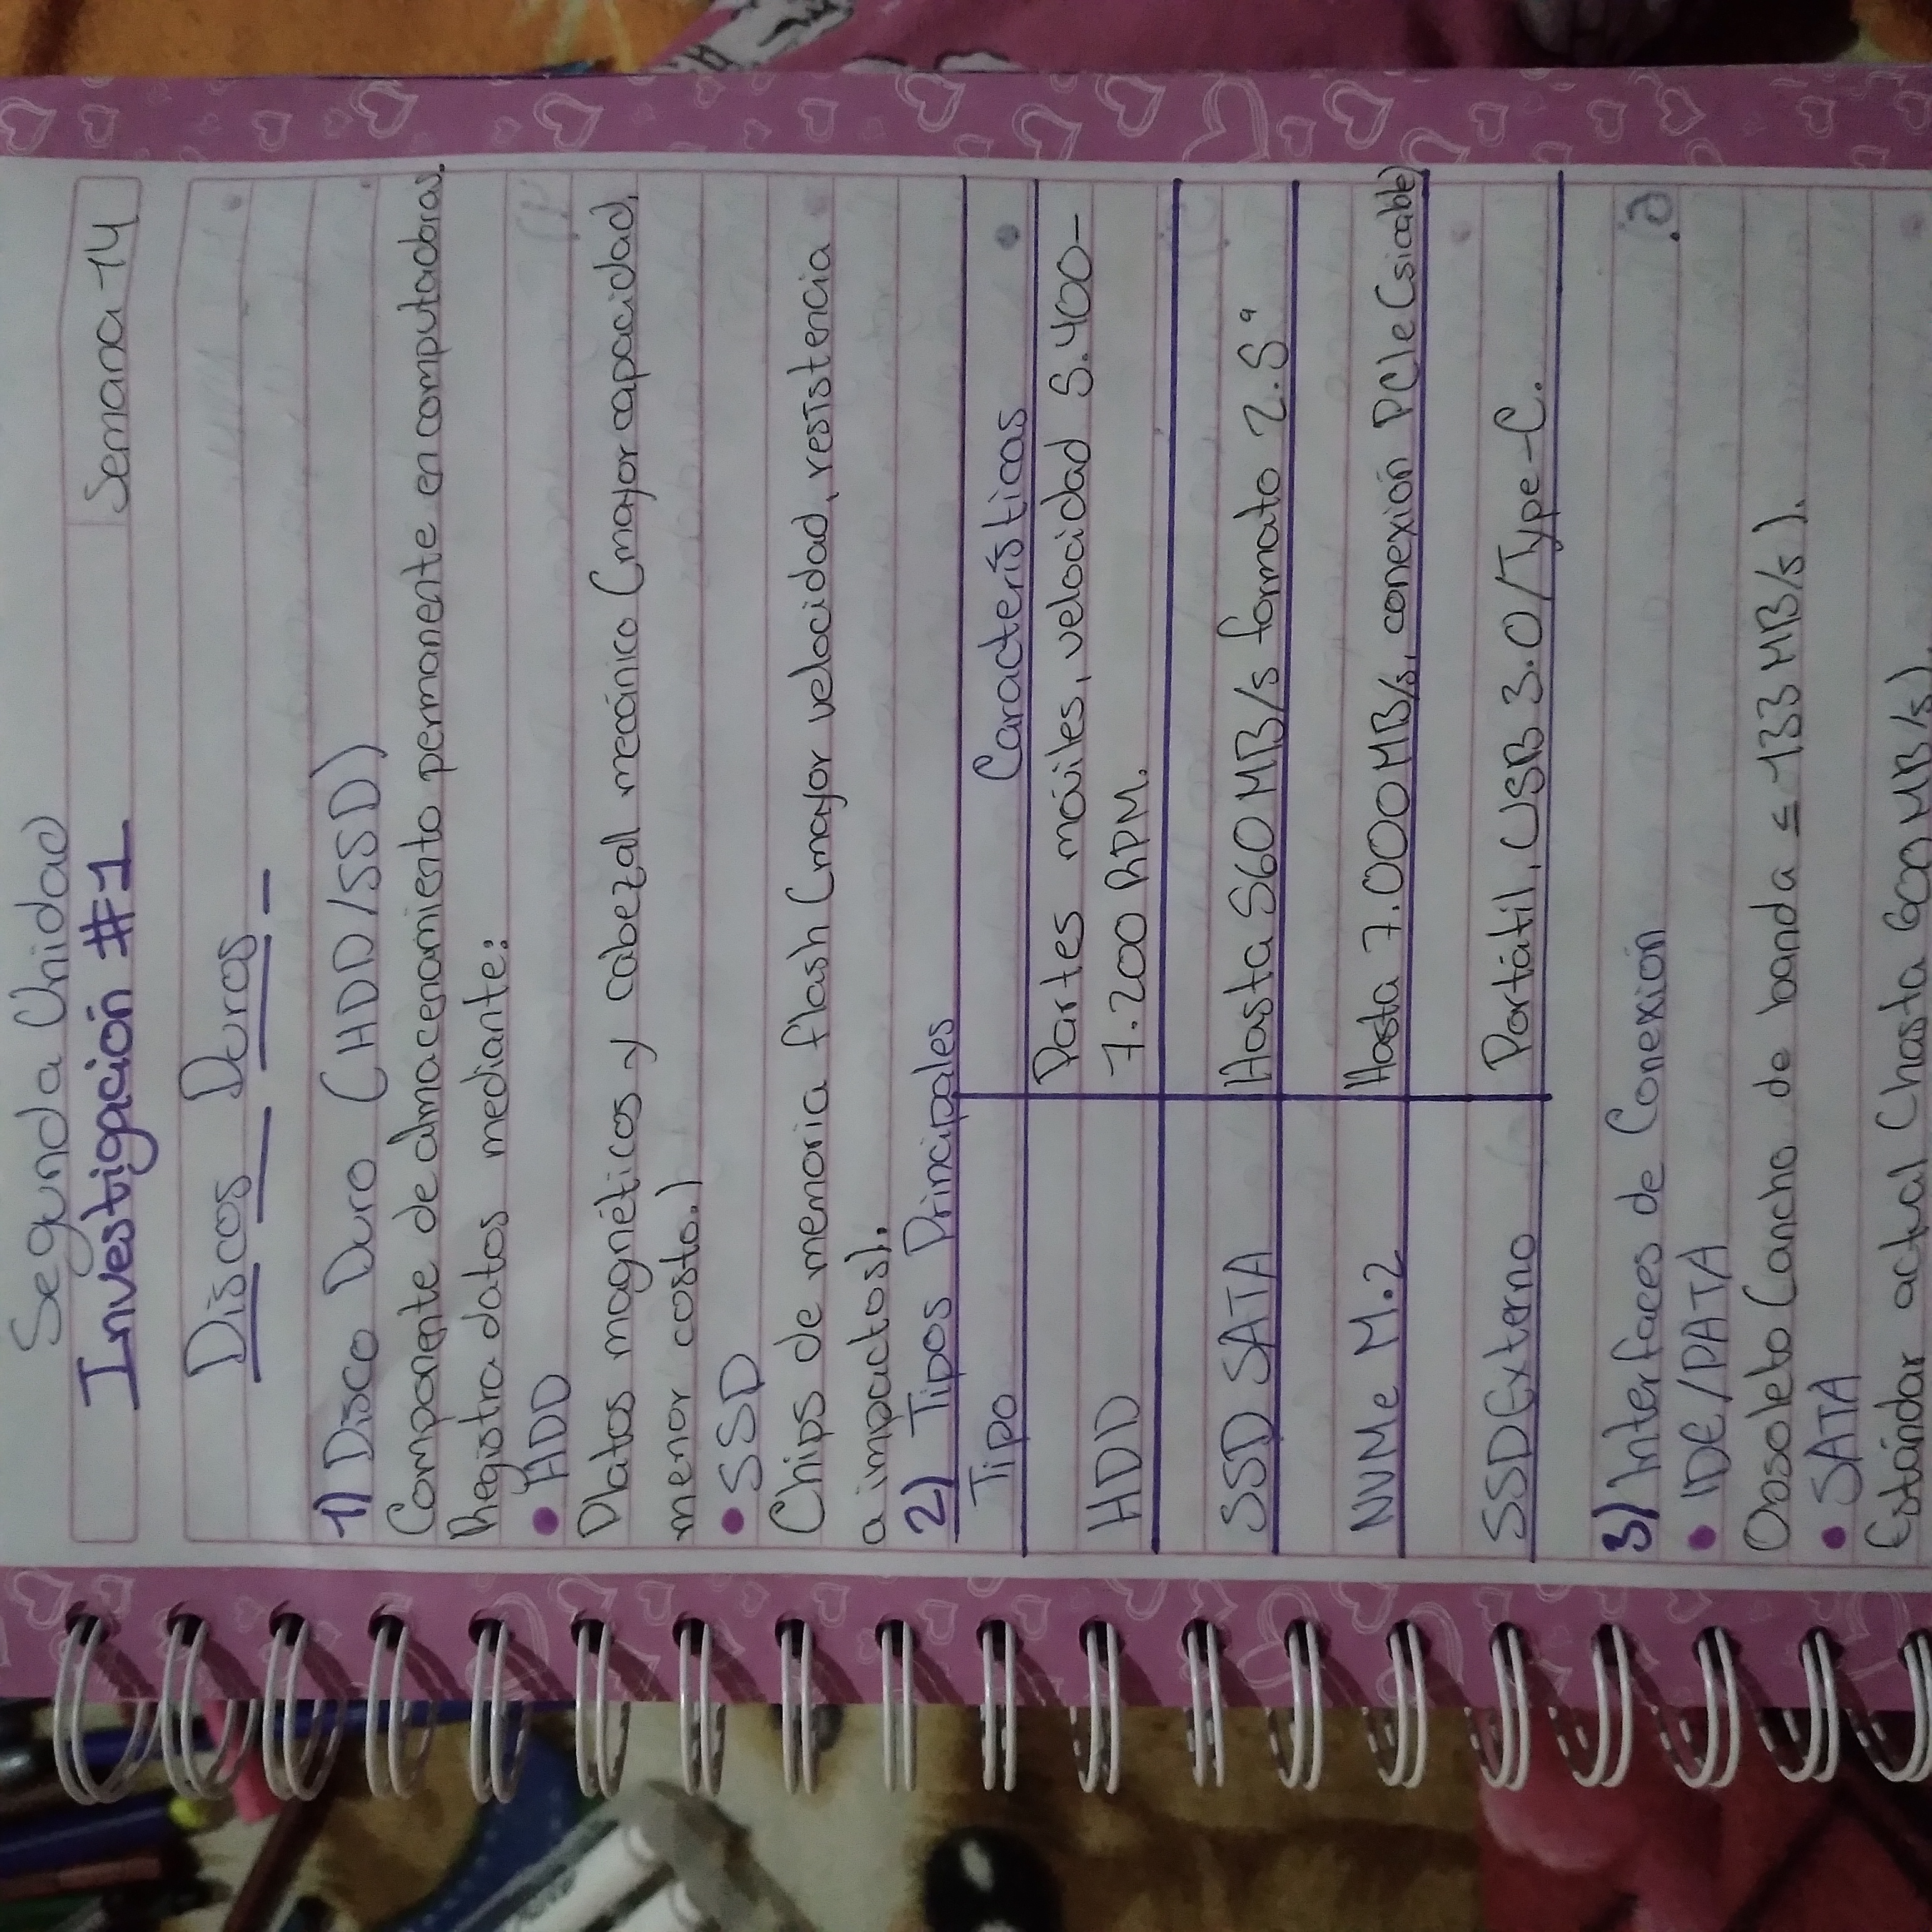 Segunda Unidad
Investigación #1
Semana-14
Discos Duros
1) Disco Duro (HDD/SSD)
Componente de almacenamiento permanente en computadoras.
Registra datos mediante:
• HDD
Platos magnéticos y cabezal mecánico (mayor capacidad,
menor costo.)
• SSD
Chips de memoria flash (mayor velocidad, resistencia
a impactos).
2) Tipos Principales
Tipo Características
HDD Partes móviles, velocidad 5.400-
7.200 RPM.
SSD SATA Hasta 560 MB/s formato 2.5"
NVMe M.2 Hasta 7.000 MB/s, conexión PCIe (sicable)
SSD Externo Portátil, USB 3.0/Type-C.
3) Interfaces de Conexión
• IDE/PATA
Obsoleto (ancho de banda ≤ 133 MB/s).
• SATA
Estándar actual (hasta 600 MB/s).